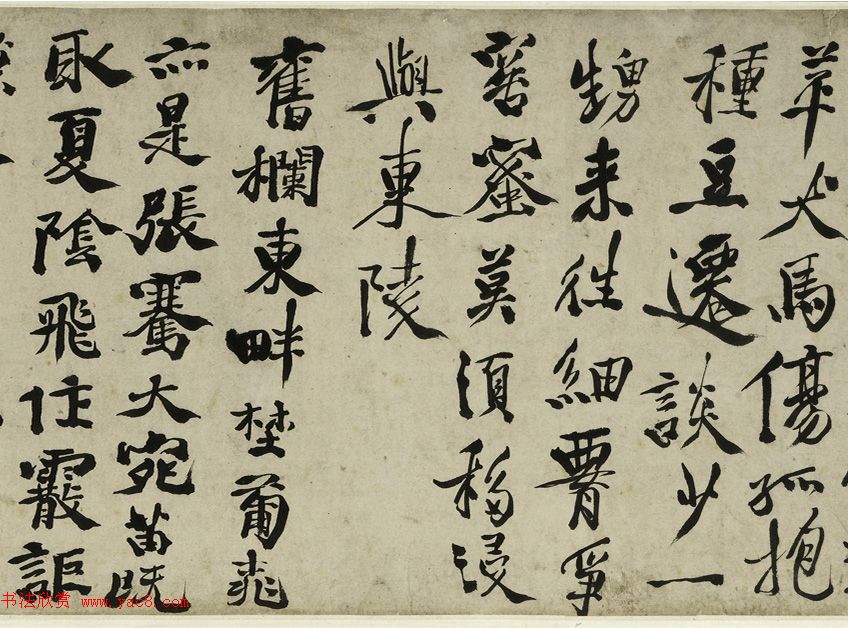 犬馬傷孤抱
種豆遷談少一
甥来往細爭
蜜莫須移浸
與東陵
舊欄東畔埜葡
亦是張騫大宛苗既
取夏陰飛住霰詎
书法欣赏 www.yac8.com